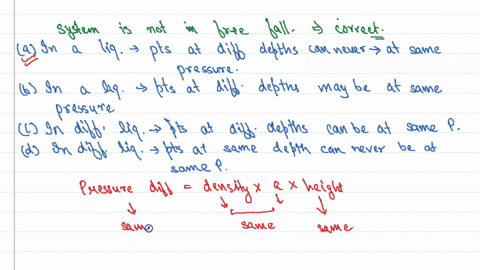 system is not in free fall. ⇒ correct.
(a) In a liq. → pts at diff depths can never → at same
pressure.
(b) In a liq. → pts at diff. depths may be at same
pressure
(c) In diff. liq. → pts at diff. depths can be at same P.
(d) In diff liq → pts at same depth can never be at
same P.
Pressure diff = density × a × height
same same same